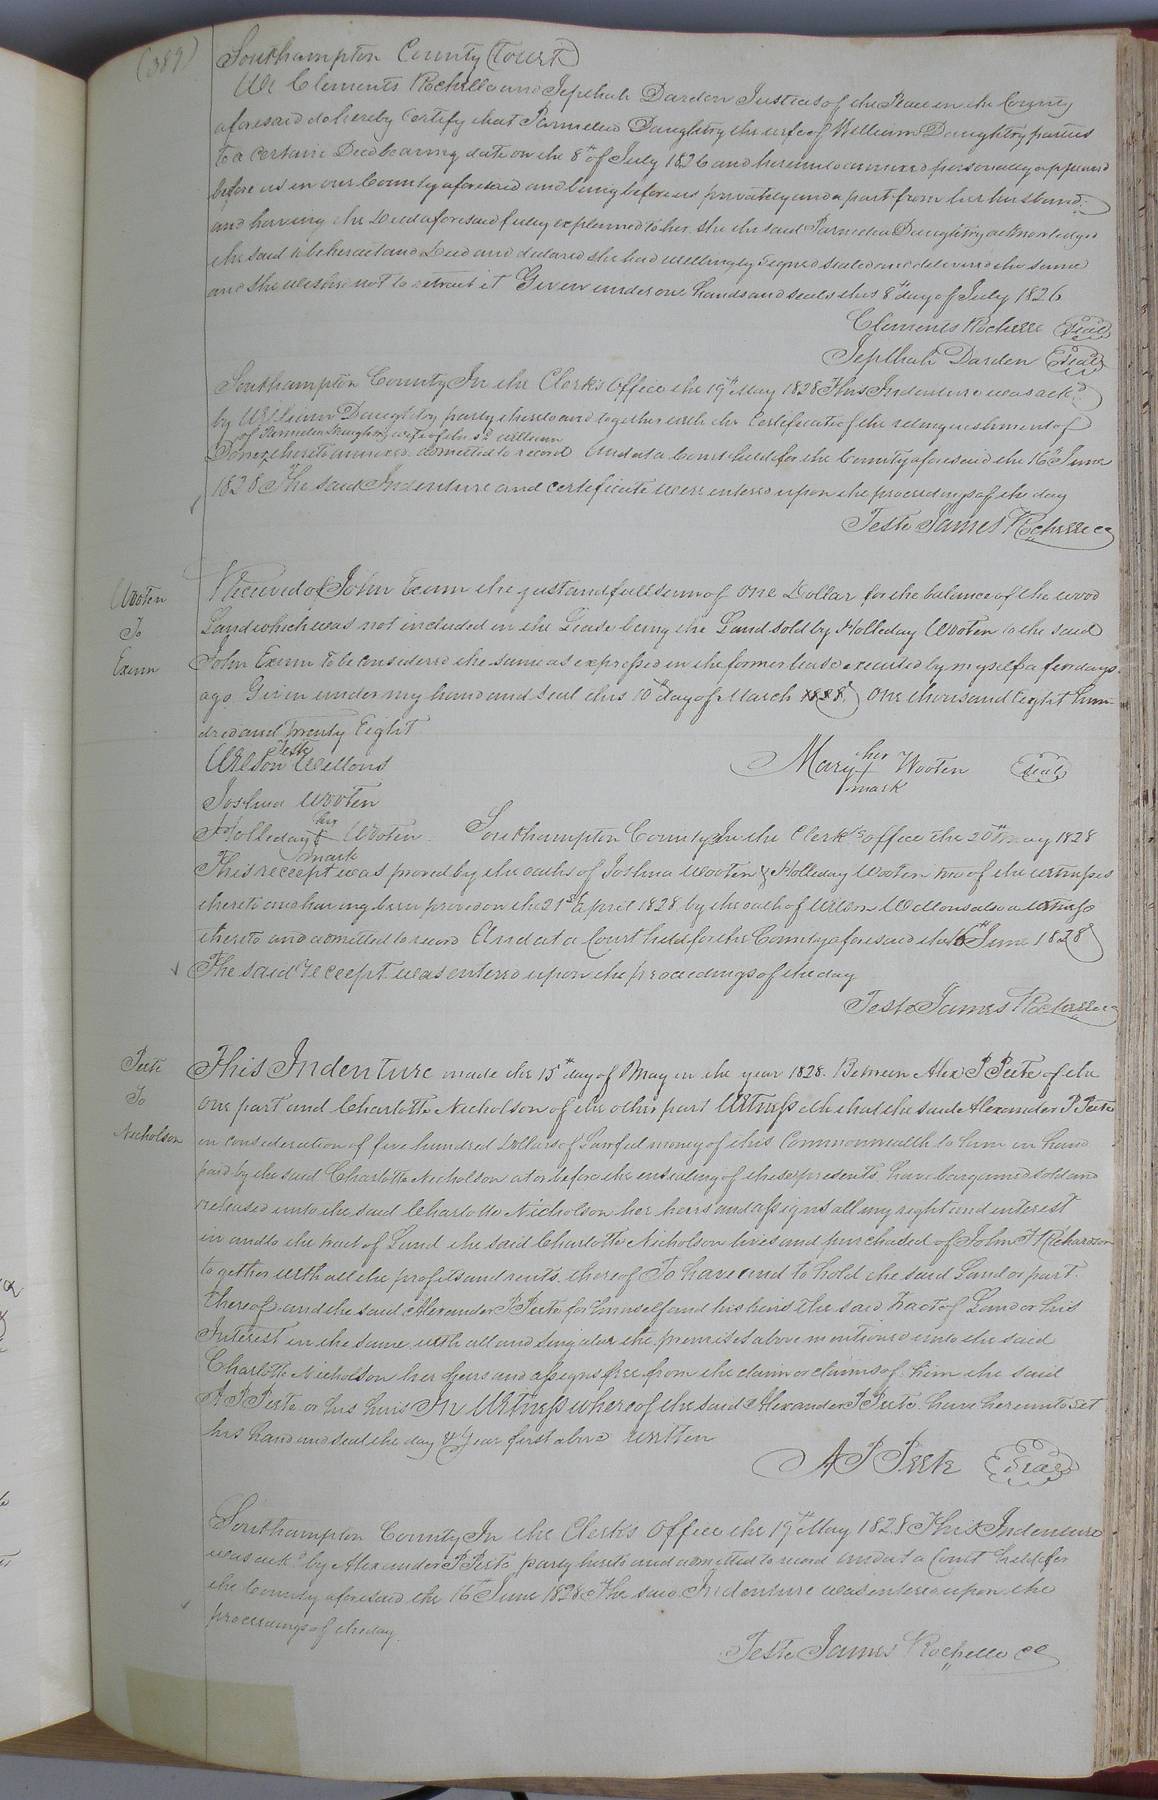 (389)
Southampton County (Court)
We Clements Rochelle and Jepthah Darden Justices of the Peace in the County
aforesaid do hereby Certify that Parmelia Daughtry the wife of William Daughtry parties
to a certain Deed bearing date on the 8th of July 1826 and hereunto annexed personally appeared
before us in our County aforesaid and being before us privately and a part from her husband
and having the Deed aforesaid fully explained to her she the said Parmelia Daughtry acknowledged
the said to be her act and Deed and declared she had willingly signed sealed and delivered the same
and she wishes not to retract it Given under our hands and seals this 8th day of July 1826
Clements Rochelle (Seal)
Jepthah Darden (Seal)
Southampton County In the Clerk's Office the 19th May 1828 This Indenture was ackd
by William Daughtry party thereto and together with the Certificate of the relinquishment of
of Parmelia Daughtry wife of the sd William
Dower thereto annexed admitted to record And at a Court held for the County aforesaid the 16th June
1828 The said Indenture and certificate were entered upon the proceedings of the day
Teste James Rochelle cc
Wooten
To
Exum
Received of John Exum the just and full sum of one Dollar for the balance of the wood
Land which was not included in the Lease being the Land sold by Holleday Wooten to the said
John Exum to be considered the same as expressed in the former lease executed by myself a few days
ago Given under my hand and seal this 10th day of March 1828 One thousand Eight hun-
dred and Twenty Eight
Teste
Wilson Wellons
Mary her + mark Wooten (Seal)
Joshua Wooten
Holleday his + mark Wooten Southampton County In the Clerk's office the 20th May 1828
This receept was proved by the oaths of Joshua Wooten & Holleday Wooten two of the witnesses
thereto and having been proved on the 21st April 1828 by the oath of Wilson Wellons also a witness
thereto and admitted to record And at a Court held for the County aforesaid the 16th June 1828
The said receept was entered upon the proceedings of the day
Teste James Rochelle cc
Peete
To
Nicholson
This Indenture made the 15th day of May in the year 1828. Between Alex P Peete of the
one part and Charlotte Nicholson of the other part Witnesseth that the said Alexander P Peete
in consideration of five hundred Dollars of Lawful money of this Commonwealth to him in hand
paid by the said Charlotte Nicholson at or before the ensealing of these presents, have bargained sold and
released unto the said Charlotte Nicholson her heirs and assigns all my right and interest
in and to the tract of Land the said Charlotte Nicholson lives and purchased of John F Richardson
together with all the profits and rents thereof To have and to hold the said Land or part
thereof and the said Alexander P Peete for himself and his heirs the said tract of Land or his
Interest in the same with all and singular the premises above mentioned unto the said
Charlotte Nicholson her heirs and assigns free from the claim or claims of him the said
A P Peete or his heirs In Witness whereof the said Alexander P Peete have hereunto set
his hand and seal the day & Year first above written
A P Peete (Seal)
Southampton County In the Clerk's Office the 19th May 1828 This Indenture
was ackd by Alexander P Peete party hereto and admitted to record and at a Court held for
the County aforesaid the 16th June 1828 The said Indenture was entered upon the
proceedings of the day.
Teste James Rochelle cc